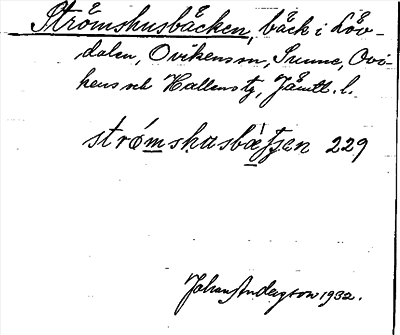 Strömshusbäcken, bäck i Löv-
dalen, Ovikensn, Sunne, Ovi-
kens och Hallens tg, Jämtl. l.
strómshusbæ̀ʃʃen 229
Johan Anderson 1932.